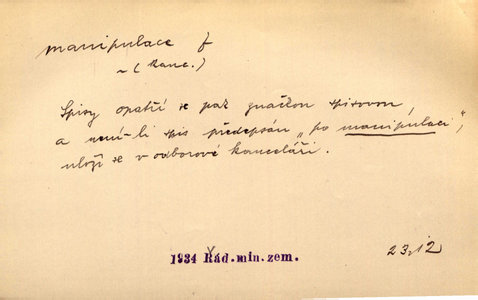 manipulace f
~ (kanc.)
Spisy opatří se pak značkou spisovou,
a není-li spis předepsán „po manipulaci“,
uloží se v odborové kanceláři.
1934 Řád.min.zem.
23,12